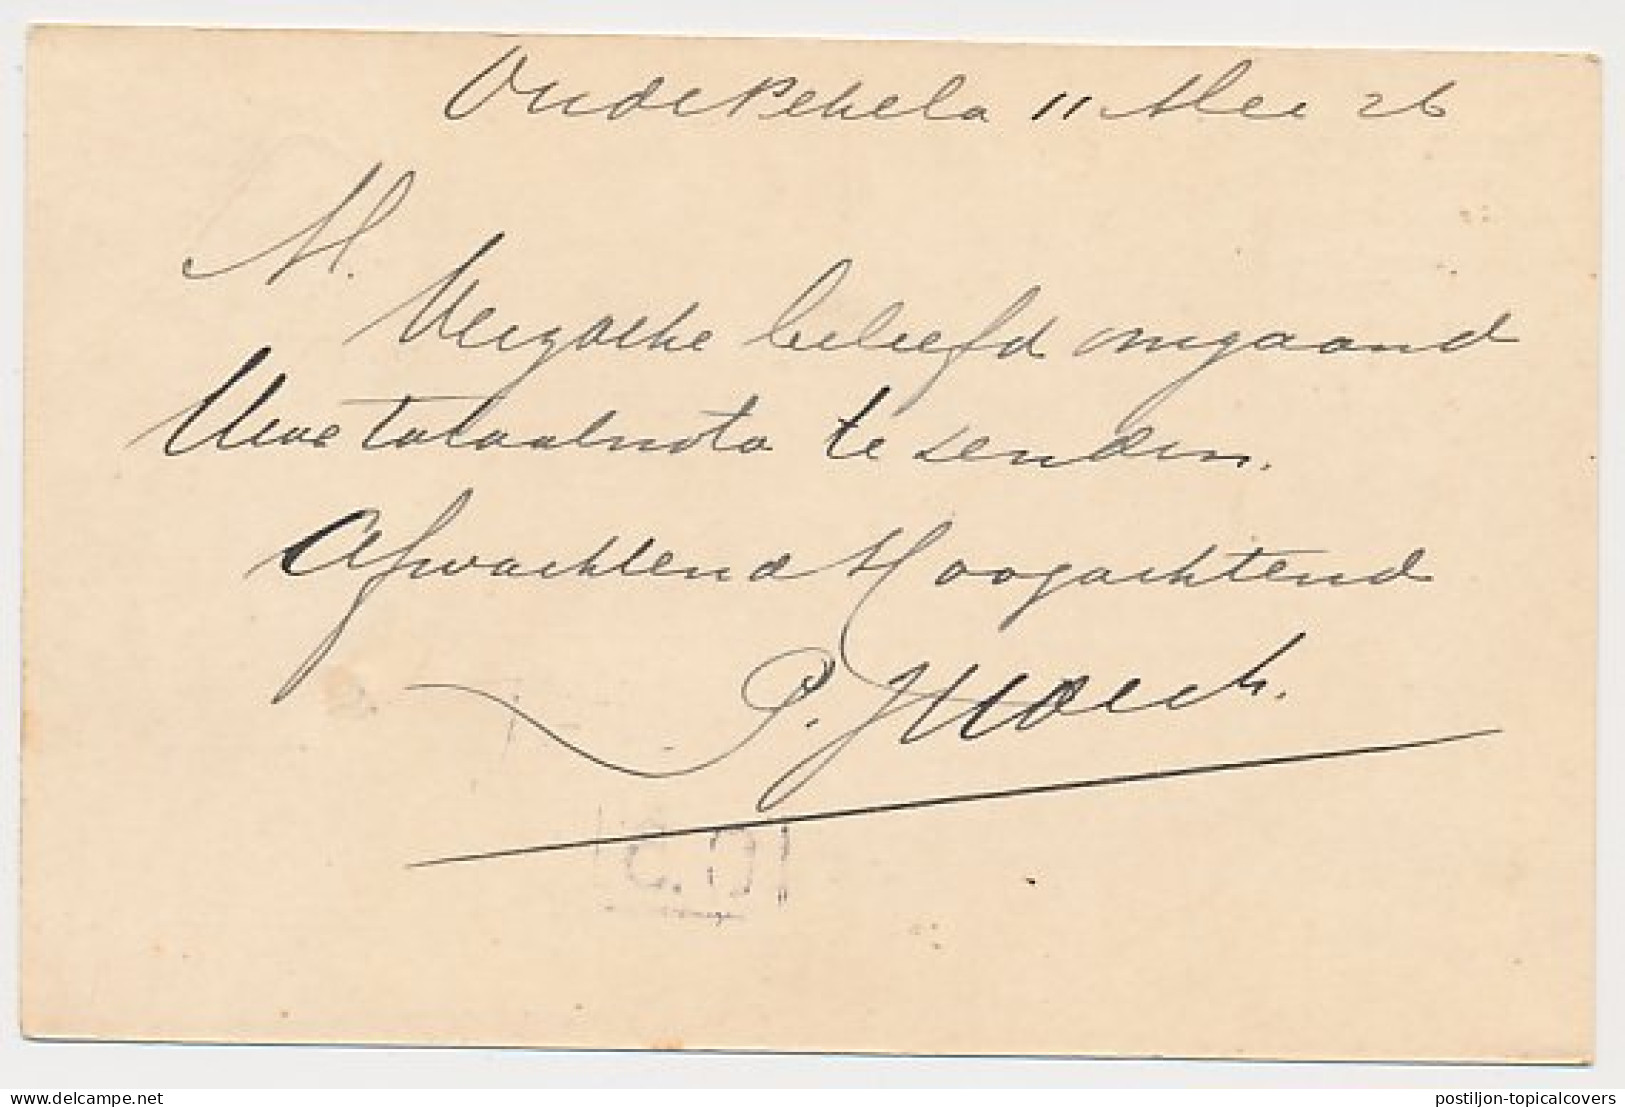 Oude Pekela 11 Mei 26
M.
Verzoeke beleefd omgaand
Uwe totaalnota te zenden.
Afwachtend Hoogachtend
P.
C.D
delcampe.net
postiljon-topicalcovers